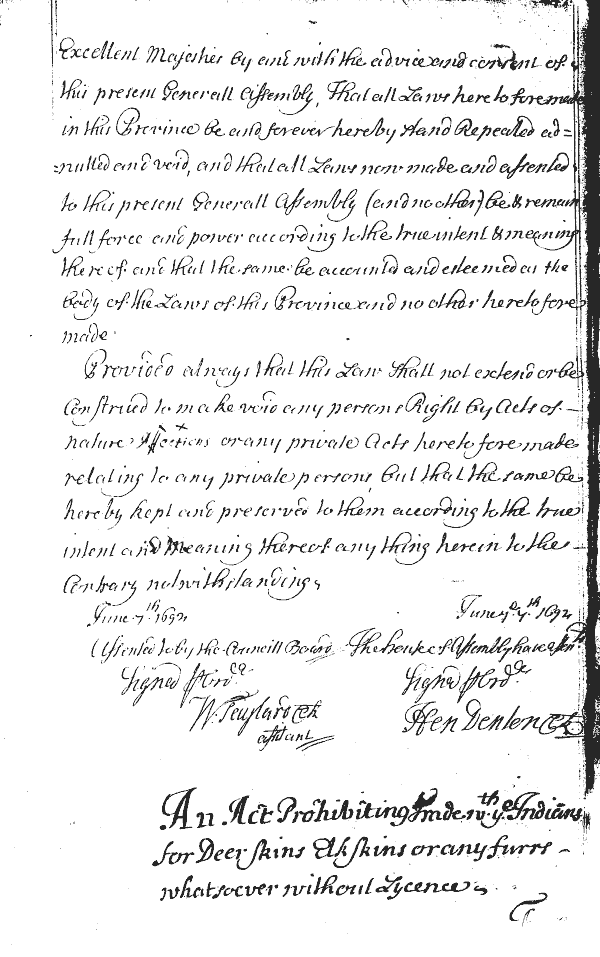 Excellent Majesties by and with the advice and consent of
this present Generall Assembly, That all Laws heretofore made
in this Province be and forever hereby stand Repealed ad=
=nulled and void, and that all Laws now made and assented
to this present Generall Assembly (and no other) be & remain
full force and power according to the true intent & meaning
thereof and that the same be accounted and esteemed as the
body of the Laws of this Province and no other heretofore
made
Provided always that this Law shall not extend or be
Construed to make void any persons Right by Acts of
nature or any private Acts heretofore made
relating to any private persons but that the same be
hereby kept and preserved to them according to the true
intent and Meaning thereof any thing herein to the
Contrary notwithstanding
June 7th: 1692 June ye 7th 1692
Assented to by the Councill Board The house of Assembly have assent
Signed p Ordr Signed p Ordr
W. Clk Hen Denton Clk
assistant
An Act Prohibiting Trade wth ye Indians
for Deer skins Elk skins or any furrs
whatsoever without Lycence